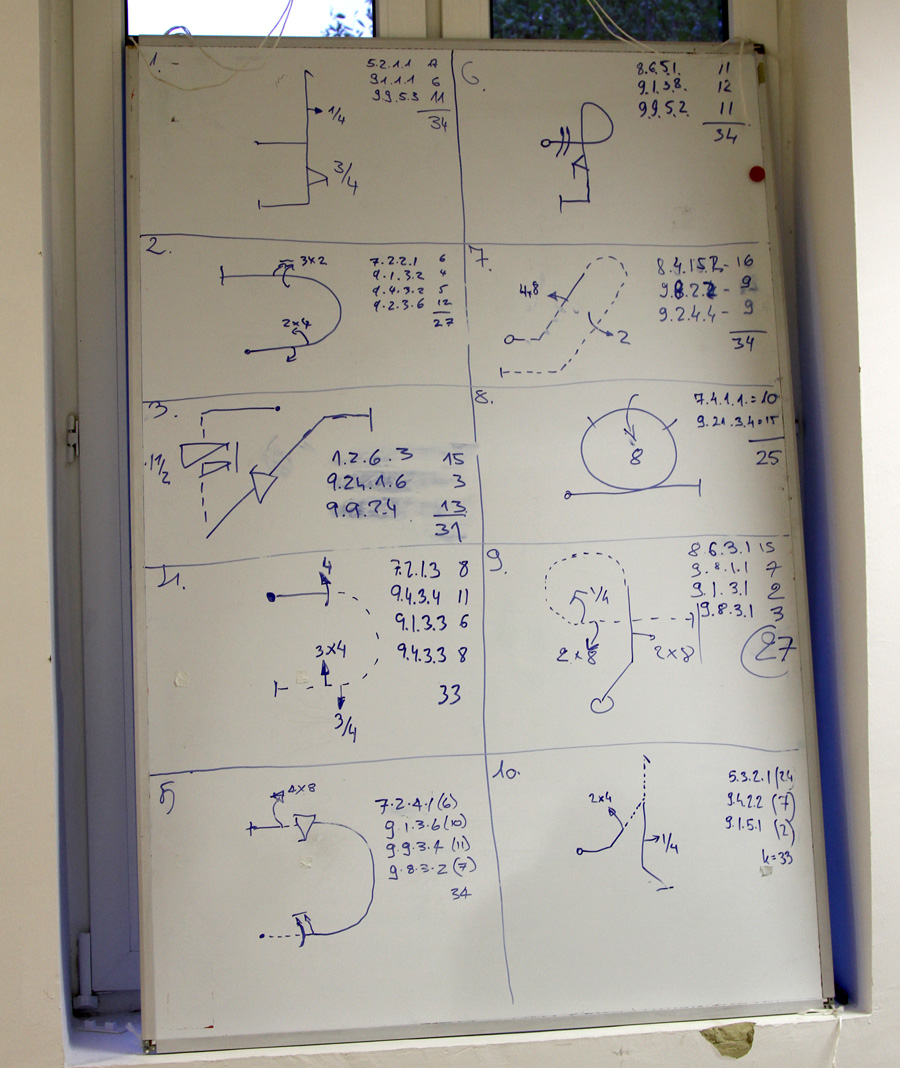 1. -
5.2.1.1
9.1.1.1 6
9.9.5.3 11
34
1/4
3/4
2.
3x2
2x4
7.2.2.1 6
9.1.3.2 4
9.4.3.2 5
9.2.3.6 12
27
3.
1 1/2
1.2.6.3 15
9.24.1.6 3
9.9.2.4 13
31
4.
4
3x4
3/4
7.2.1.3 8
9.4.3.4 11
9.1.3.3 6
9.4.3.3 8
33
5
4x8
7.2.4.1 (6)
9.1.3.6 (10)
9.9.3.4 (11)
9.8.3.2 (7)
34
6.
8.6.5.1. 11
9.1.3.8. 12
9.9.5.2. 11
34
7.
4x8
2
8.4.15.2 - 16
9.8.2.2 - 9
9.2.4.4 - 9
34
8.
8
7.4.1.1. = 10
9.21.3.4 = 15
25
9.
5 1/4
2x8
2x8
8.6.3.1 15
9.8.1.1 7
9.1.3.1 2
9.8.3.1 3
27
10.
2x4
1/4
5.3.2.1/24
9.4.2.2 (7)
9.1.5.1 (2)
k=33